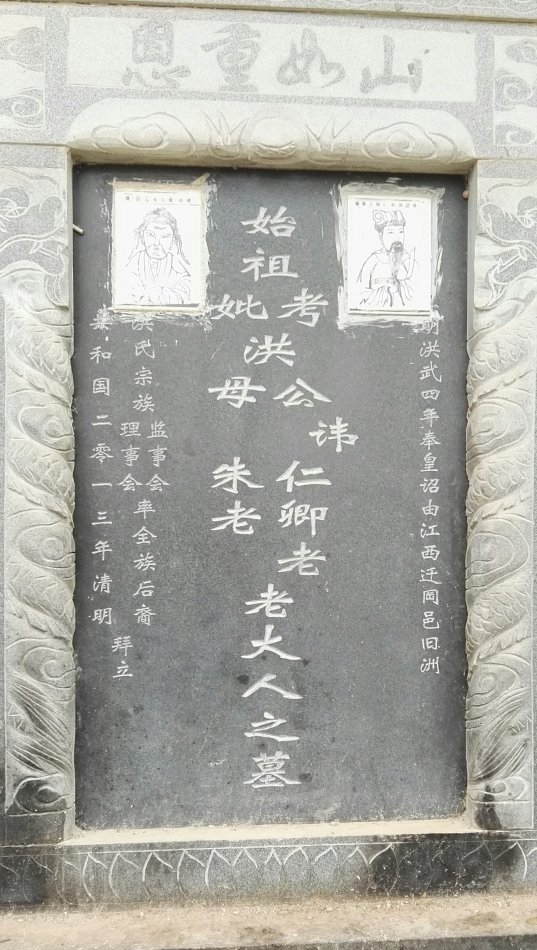 恩重如山
明洪武四年奉皇诏由江西迁冈邑旧洲
始祖
考洪公讳仁卿老
妣母朱老
老大人之墓
洪氏宗族
监事会
理事会
率全族后裔
拜立
和国二零一三年清明